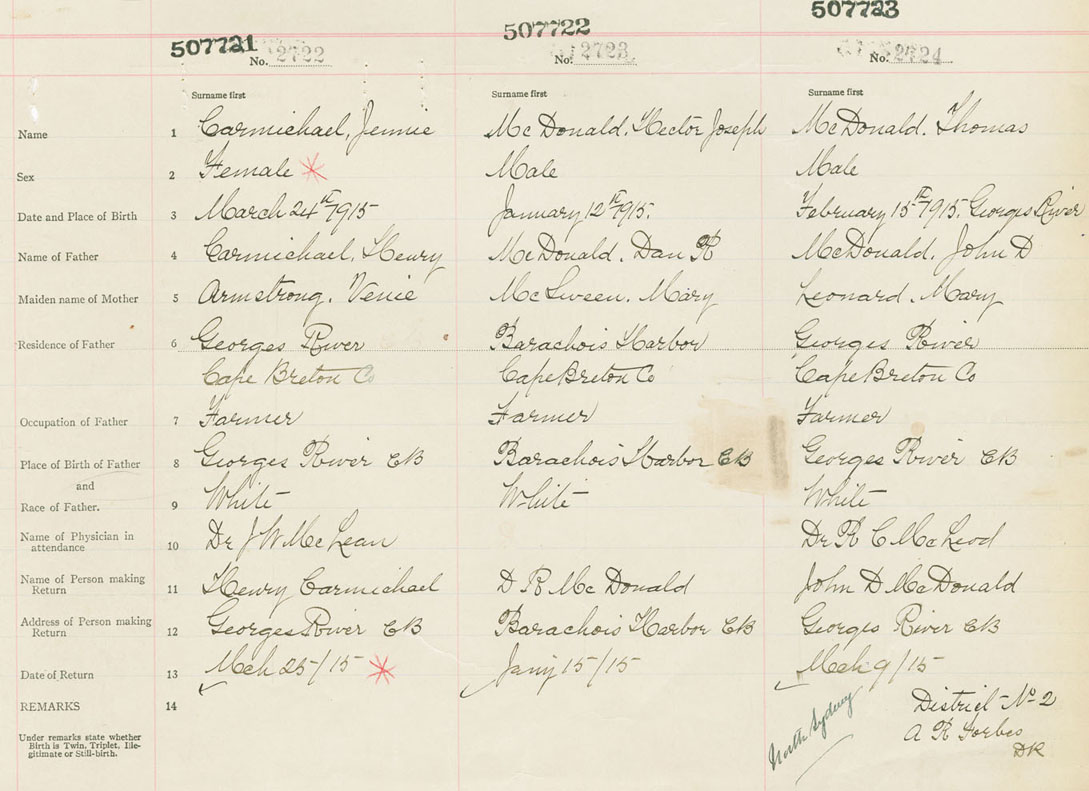 507721 507722 507723
No. 2722 No. 2723 No. 2724
Surname first Surname first Surname first
Name 1 Carmichael, Jennie McDonald. Hector Joseph McDonald. Thomas
Sex 2 Female Male Male
Date and Place of Birth 3 March 24th 1915 January 12th 1915. February 15th 1915. Georges River
Name of Father 4 Carmichael. Henry McDonald. Dan R McDonald. John D
Maiden name of Mother 5 Armstrong. Venie McSween. Mary Leonard. Mary
Residence of Father 6 Georges River Barachois Harbor Georges River
Cape Breton Co Cape Breton Co Cape Breton Co
Occupation of Father 7 Farmer Farmer Farmer
Place of Birth of Father 8 Georges River CB Barachois Harbor CB Georges River CB
and
Race of Father. 9 White White White
Name of Physician in
attendance 10 Dr J W McLean Dr R C McLeod
Name of Person making
Return 11 Henry Carmichael D R McDonald John D McDonald
Address of Person making
Return 12 Georges River CB Barachois Harbor CB Georges River CB
Date of Return 13 Mch 25/15 Jany 15/15 Mch 9/15
REMARKS 14 North Sydney District No 2
A R Forbes
DR
Under remarks state whether
Birth is Twin, Triplet, Ille-
gitimate or Still-birth.